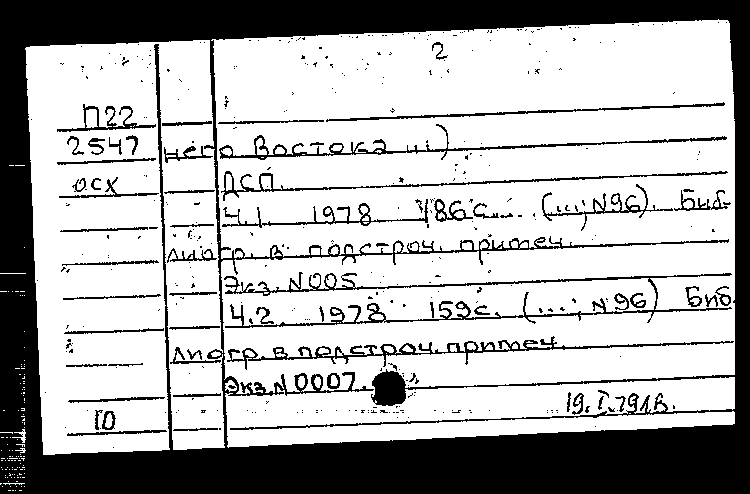 2
П22
2547 него Востока ...)
осх ДСП.
Ч.1. 1978 186с.... (...; N96). Биб-
лиогр. в подстроч. примеч.
Экз. N005
Ч.2. 1978 159с. (...; N96) Биб.
лиогр. в подстроч. примеч.
Экз. N0007.
10 19.I.79